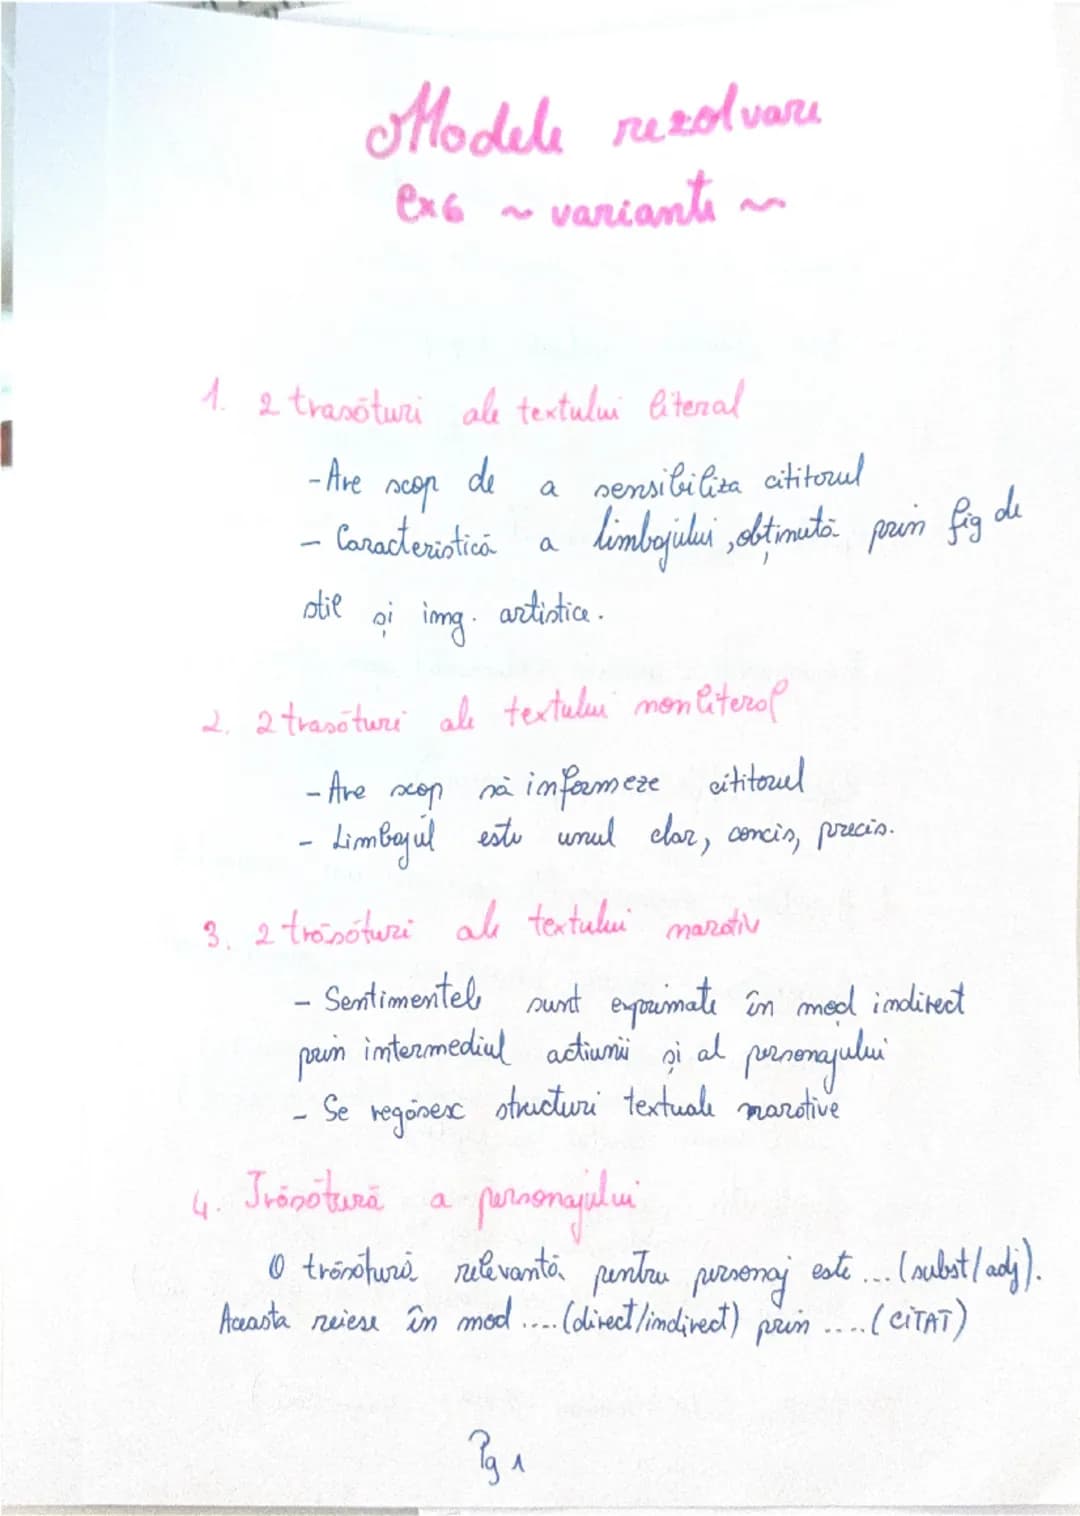 Modele rezolvare
ex6 ~ variante ~
1. 2 trasături ale textului literal
- Are scop de a sensibiliza cititorul
- Caracteristică a limbajului, obținută prin fig de
stil și img. artistice.
2. 2 trasături ale textului nonliteral
- Are scop să informeze cititorul
- Limbajul este unul clar, concis, precis.
3. 2 trăsături ale textului narativ
- Sentimentele sunt exprimate în mod indirect
prin intermediul actiunii și al personajului
- Se regăsesc structuri textuale narative
4. Trăsătură a personajului
O trăsătură relevantă pentru personaj este ... (subst/adj).
Aceasta reiese în mod .... (direct/indirect) prin .... (CITAT)
Pg 1